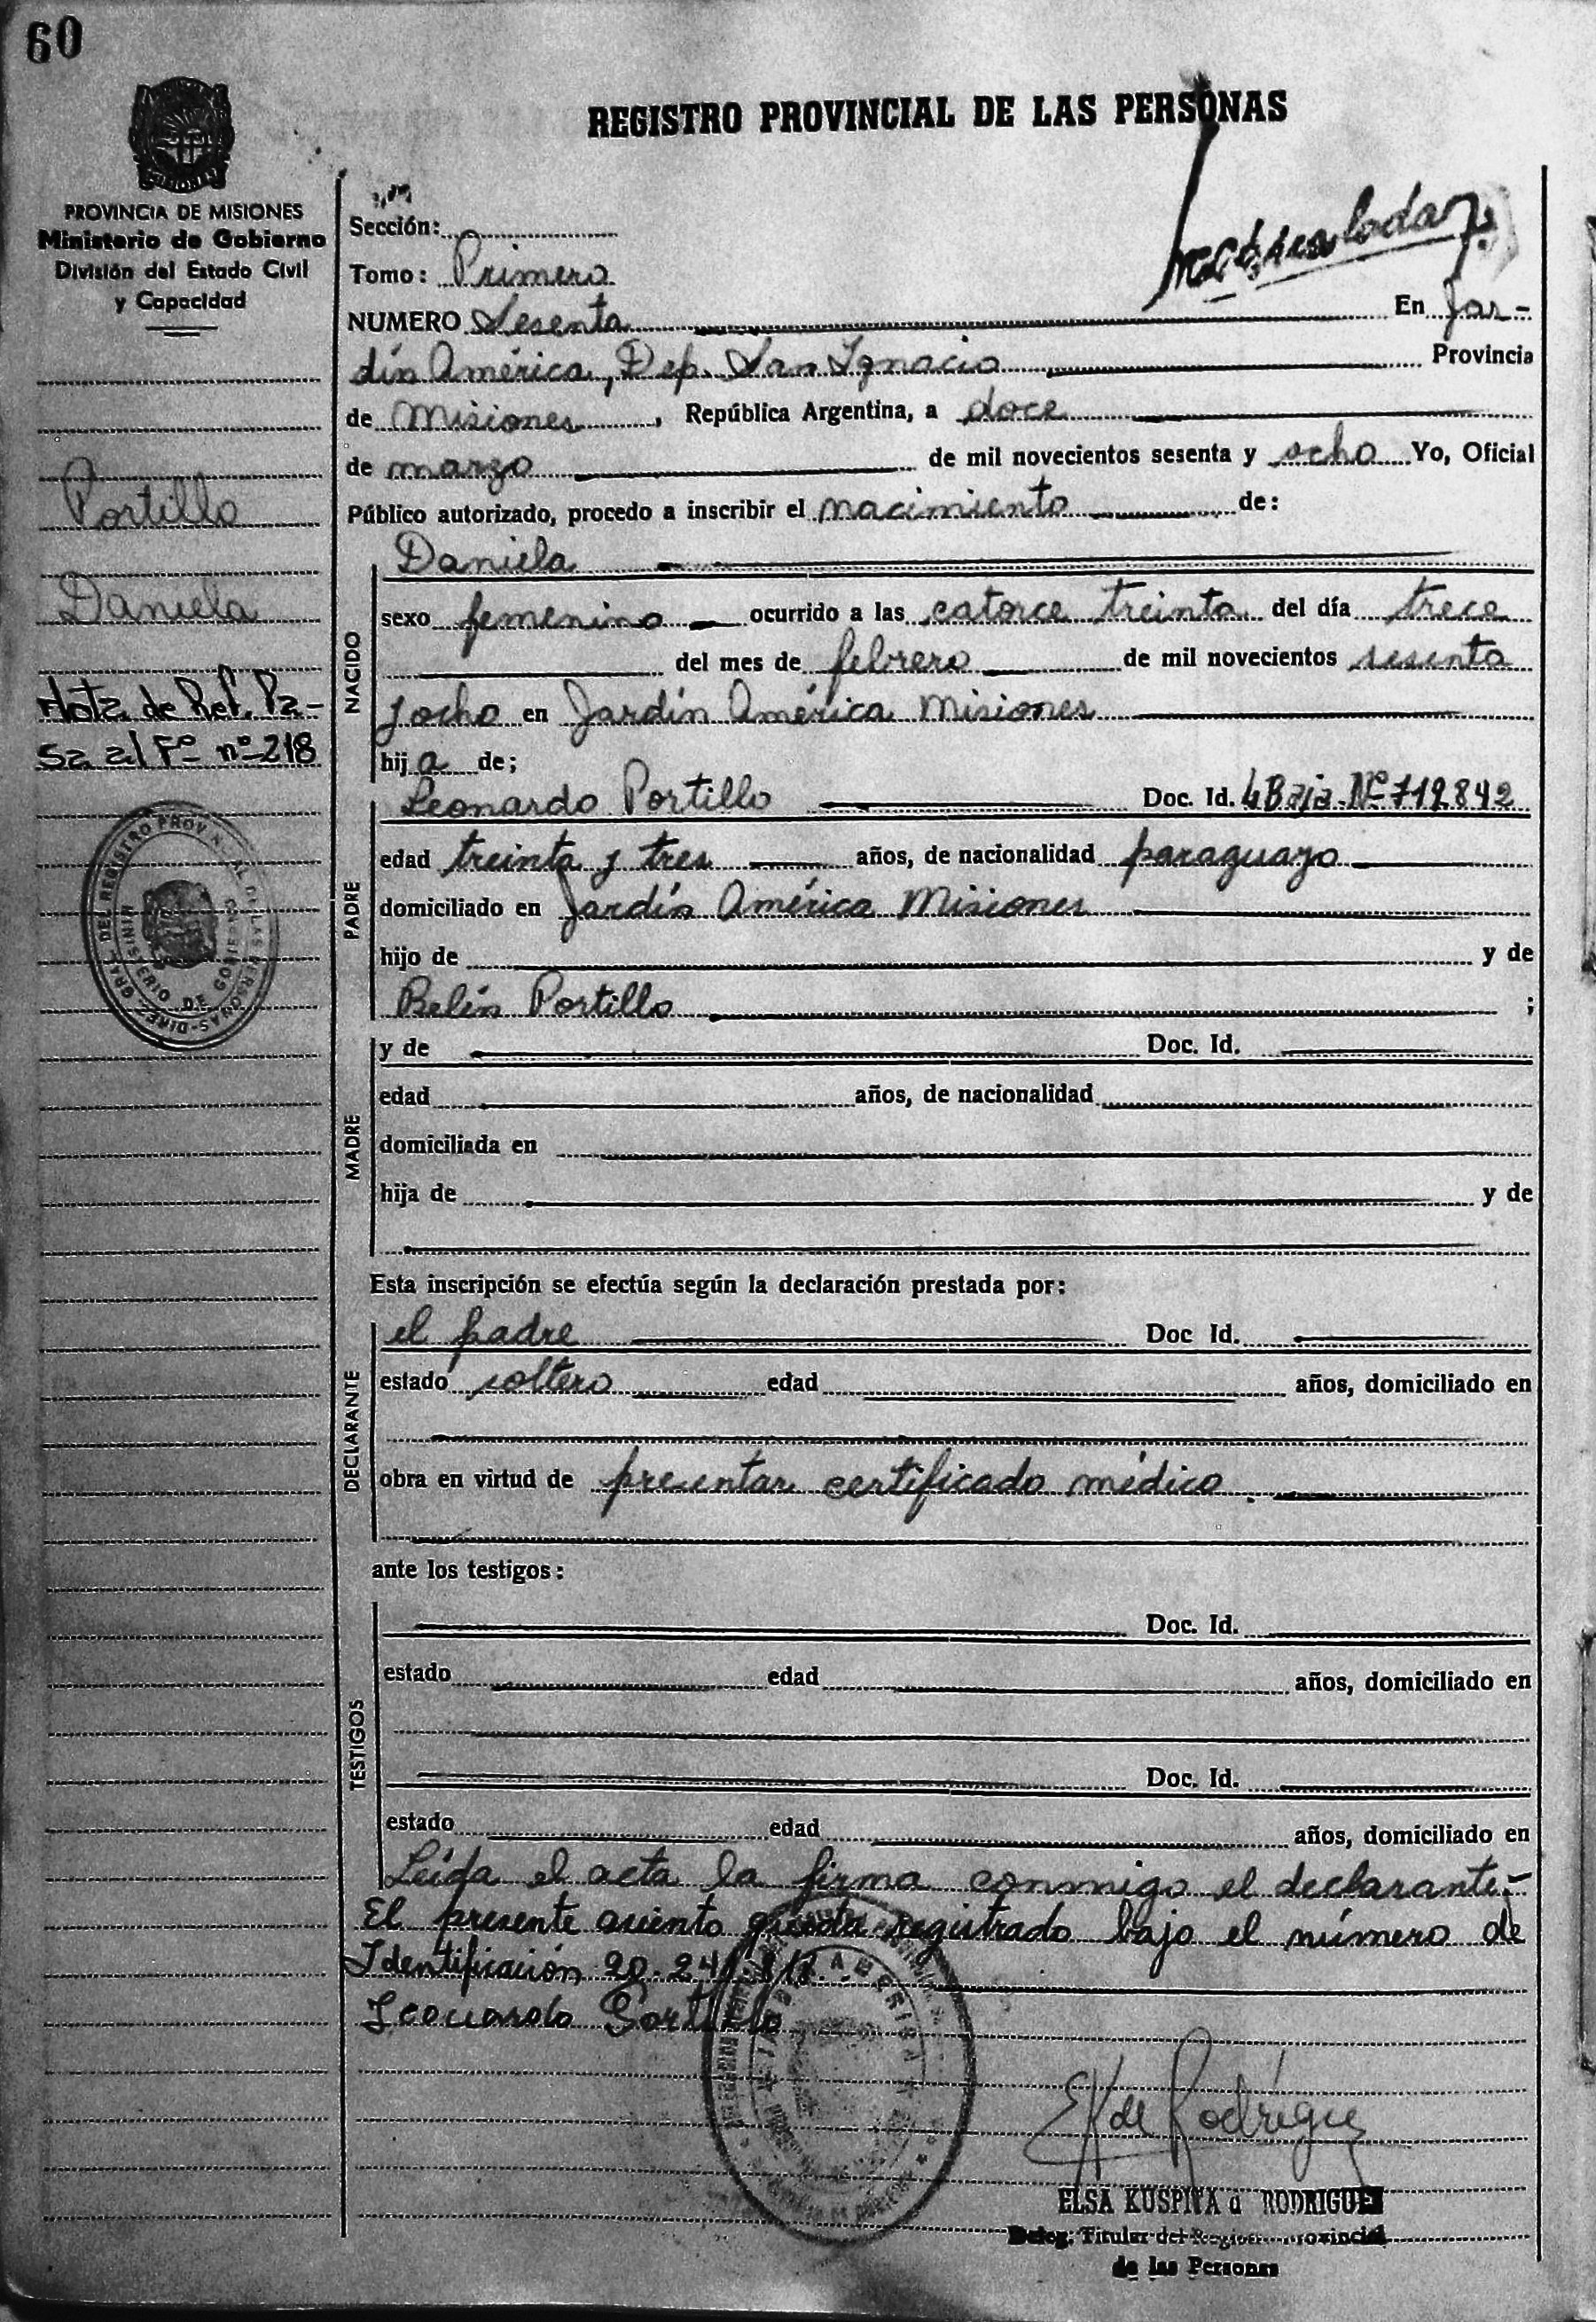 60
REGISTRO PROVINCIAL DE LAS PERSONAS
PROVINCIA DE MISIONES
Ministerio de Gobierno
División del Estado Civil
y Capacidad
Portillo
Daniela
Nota de Ref. Pa-
sa al Fº nº 218
Sección:
Tomo: Primero
NUMERO Sesenta En Jar-
dín América, Dep. San Ignacio Provincia
de Misiones, República Argentina, a doce
de marzo de mil novecientos sesenta y ocho Yo, Oficial
Público autorizado, procedo a inscribir el nacimiento de:
NACIDO
Daniela
sexo femenino ocurrido a las catorce treinta del día trece
del mes de febrero de mil novecientos sesenta
y ocho en Jardín América Misiones
hija de;
PADRE
Leonardo Portillo Doc. Id. 4 Baja. Nº 719842
edad treinta y tres años, de nacionalidad paraguayo
domiciliado en Jardín América Misiones
hijo de y de
Belén Portillo ;
MADRE
y de Doc. Id.
edad años, de nacionalidad
domiciliada en
hija de y de
Esta inscripción se efectúa según la declaración prestada por:
DECLARANTE
el padre Doc Id.
estado soltero edad años, domiciliado en
obra en virtud de presentar certificado médico.
ante los testigos:
TESTIGOS
Doc. Id.
estado edad años, domiciliado en
Doc. Id.
estado edad años, domiciliado en
Leída el acta la firma conmigo el declarante.-
El presente asiento queda registrado bajo el número de
Identificación 20.24
Leonardo Portillo
EK de Rodríguez
ELSA KUSPITA d RODRIGUEZ
Deleg. Titular del Registro Provincial
de las Personas